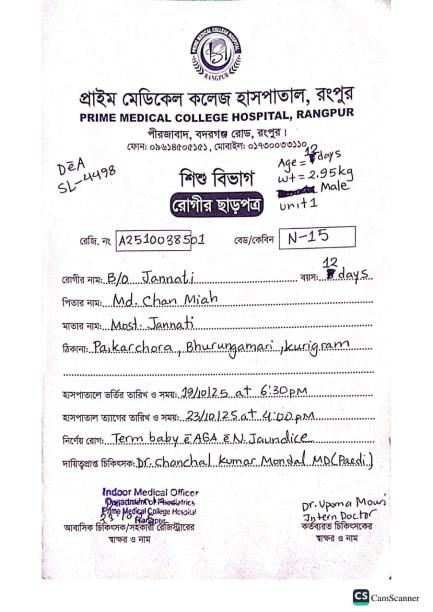 PRIME MEDICAL COLLEGE HOSPITAL
RANGPUR
প্রাইম মেডিকেল কলেজ হাসপাতাল, রংপুর
PRIME MEDICAL COLLEGE HOSPITAL, RANGPUR
পীরজাবাদ, বদরগঞ্জ রোড, রংপুর।
ফোন: ০৯৬১৪৫০৫১৫১, মোবাইল: ০১৭৩০০৩৩১১০
DēA
SL-4498
Age = 12 days
wt = 2.95kg
Male
unit 1
শিশু বিভাগ
রোগীর ছাড়পত্র
রেজি. নং A2510038501 বেড/কেবিন N-15
রোগীর নাম: B/O Jannati বয়স: 12 days
পিতার নাম: Md. Chan Miah
মাতার নাম: Most. Jannati
ঠিকানা: Paikarchora, Bhurungamari, kurigram
হাসপাতালে ভর্তির তারিখ ও সময়: 19/10/25 at 6:30pm
হাসপাতাল ত্যাগের তারিখ ও সময়: 23/10/25 at 4:00pm
নির্ণেয় রোগ: Term baby ē AGA ē N. Jaundice
দায়িত্বপ্রাপ্ত চিকিৎসক: Dr. Chanchal Kumar Mondal MD(Paedi)
Indoor Medical Officer
Department of Paediatrics
Prime Medical College Hospital
Rangpur
আবাসিক চিকিৎসক/সহকারী রেজিস্ট্রারের
স্বাক্ষর ও নাম
Dr. Upoma Mouri
Intern Doctor
কর্তব্যরত চিকিৎসকের
স্বাক্ষর ও নাম
CS CamScanner